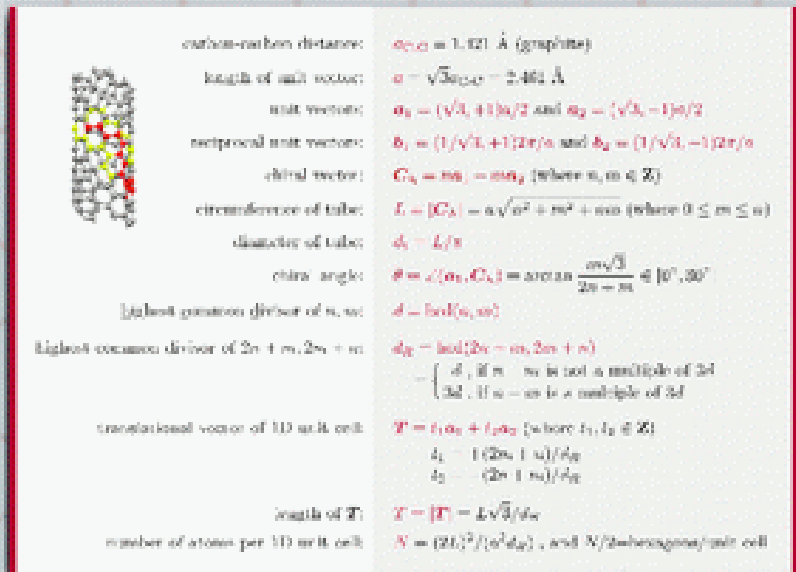 carbon-carbon distance: a_{C-C} = 1.421 Å (graphite)
length of unit vector: a = √3a_{C-C} = 2.461 Å
unit vectors: a₁ = (√3, +1)a/2 and a₂ = (√3, −1)a/2
reciprocal unit vectors: b₁ = (1/√3, +1)2π/a and b₂ = (1/√3, −1)2π/a
chiral vector: C_h = na₁ + ma₂ (where n, m ∈ Z)
circumference of tube: L = |C_h| = a√(n² + m² + nm) (where 0 ≤ m ≤ n)
diameter of tube: d_t = L/π
chiral angle: θ = ∠(a₁, C_h) = arctan m√3 / (2n + m) ∈ [0°, 30°]
highest common divisor of n, m: d = hcd(n, m)
highest common divisor of 2n + m, 2m + n: d_R = hcd(2n + m, 2m + n)
= { d , if n − m is not a multiple of 3d
3d , if n − m is a multiple of 3d
translational vector of 1D unit cell: T = t₁a₁ + t₂a₂ (where t₁, t₂ ∈ Z)
t₁ = +(2m + n)/d_R
t₂ = −(2n + m)/d_R
length of T: T = |T| = L√3/d_R
number of atoms per 1D unit cell: N = (2L)²/(a²d_R) , and N/2=hexagons/unit cell